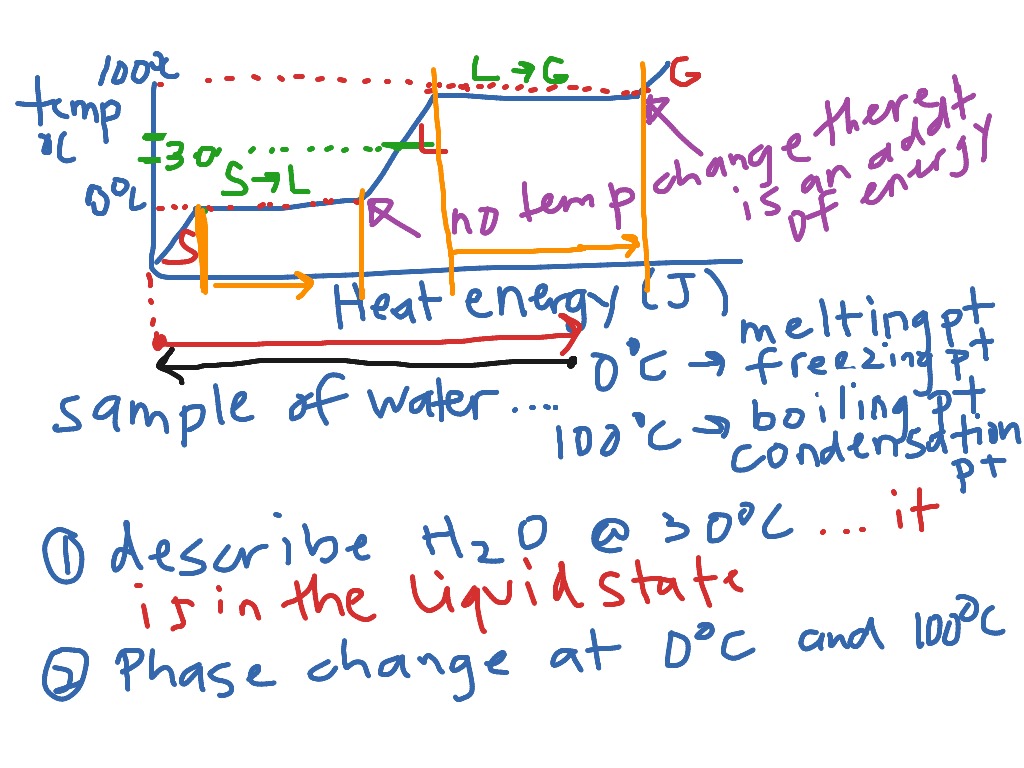 100°C
L → G
G
temp
°C
30
L
S → L
0°C
S
no temp change there
is an addt
of energy
Heat energy (J)
0°C → melting pt
freezing pt
sample of water ....
100°C → boiling pt
condensation
pt
① describe H₂O @ 30°C .... it
is in the liquid state
② Phase change at 0°C and 100°C